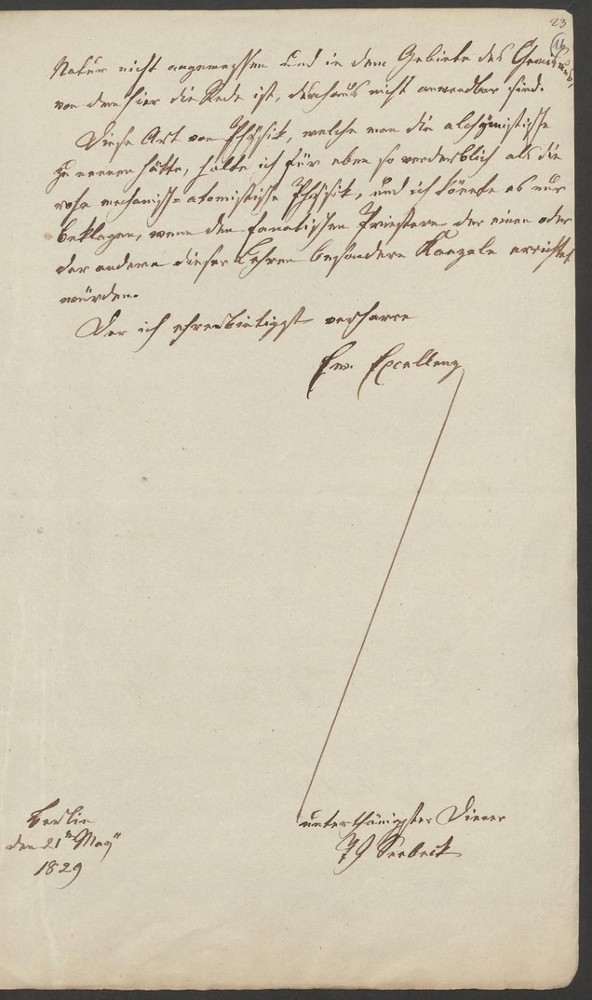 23
16
Natur nicht angemessen und in dem Gebiete des
von dem hier die Rede ist, durchaus nicht anwendbar sind.
Diese Art von Physik, welche man die alchymistische
zu nennen hätte, halte ich für eben so verderblich als die
rohe mechanisch-atomistische Physik, und ich könnte es nur
beklagen, wenn den fanatischen Priestern der einen oder
der andern dieser Lehren besondere Kanzeln errichtet
würden.
Der ich ehrerbietigst verharre
Ew. Excellenz
Berlin
den 21ten May
1829
unterthänigster Diener
TJ Seebeck